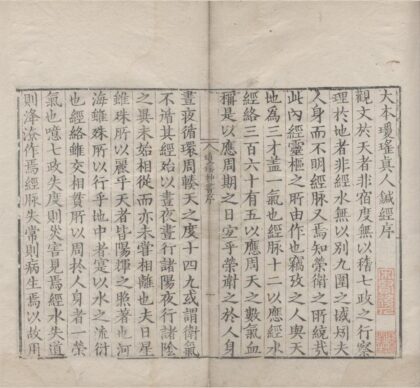 大本瓊瑤真人鍼經序
觀文於天者非宿度無以稽七政之行察
理於地者非經水無以别九圍之域矧夫
人身而不明經脉又焉知榮衛之所統哉
此内經靈樞之所由作也竊攷之人與天
地為三才蓋一氣也經脉十二以應經水
經絡三百六十有五以應周天之數氣血
稱是以應周期之日宜乎榮衛之於人身
晝夜循環周轅天之度十四九或謂衛氣
不循其經始以晝夜晝行諸陽夜行諸陰
之異未始相從而亦未嘗相離也夫日星
雖殊所以麗乎天者皆陽輝之昭著也河
海雖殊所以行乎地中者寔以水之流衍
也經絡雖交相貫屬所以周於人身者一榮
氣也噫七政失度則災害見焉經水失道
則洚潦作焉經脉失常則病生焉以故用